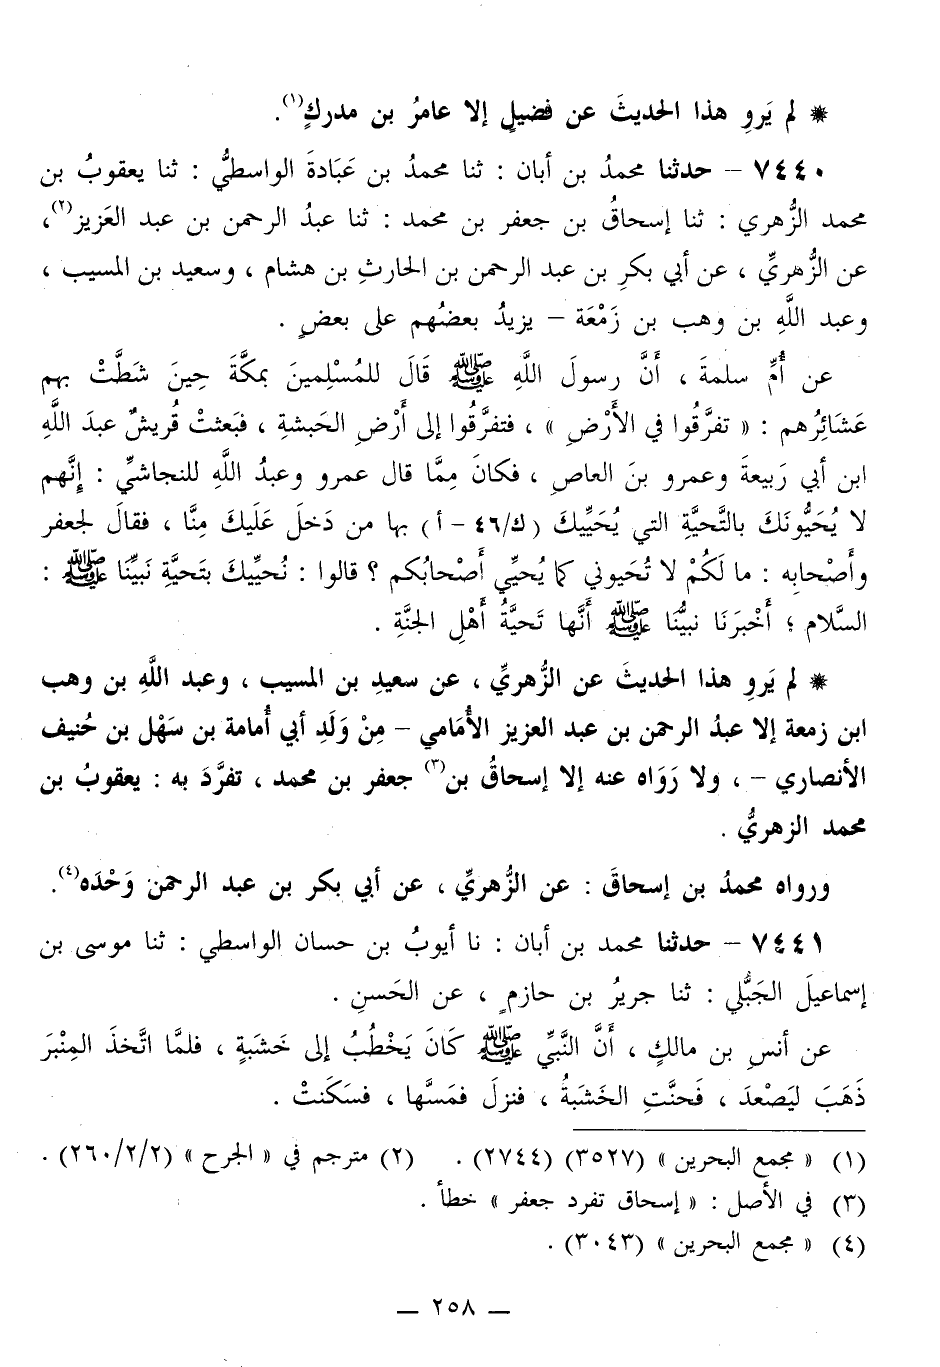 * لم يَروِ هذا الحديثَ عن فضيلٍ إلا عامرُ بن مدركٍ(١).
٧٤٤٠ – حدثنا محمدُ بن أبان : ثنا محمدُ بن عَبَادةَ الواسطيُّ : ثنا يعقوبُ بن
محمد الزُّهري : ثنا إسحاقُ بن جعفر بن محمد : ثنا عبدُ الرحمن بن عبد العَزيز(٢)،
عن الزُّهريِّ ، عن أبي بكرِ بن عبد الرحمن بن الحارثِ بن هشام ، وسعيد بن المسيب ،
وعبد اللَّهِ بن وهب بن زَمْعَة – يزيدُ بعضُهم على بعضٍ .
عن أُمِّ سلمةَ ، أَنَّ رسولَ اللَّهِ ﷺ قَالَ للمُسْلِمينَ بمكَّةَ حِينَ شَطَّتْ بهم
عَشَائِرُهم : « تفرَّقُوا في الأَرْضِ » ، فتفرَّقُوا إلى أَرْضِ الحَبشةِ ، فبَعثتْ قُريشٌ عبدَ اللَّهِ
ابن أبي رَبيعةَ وعمرو بنَ العاصِ ، فكانَ مِمَّا قال عمرو وعبدُ اللَّهِ للنجاشيِّ : إِنَّهم
لا يُحَيُّونَكَ بالتَّحيَّةِ التي يُحَيِّيكَ (ك/٤٦ – أ) بها من دَخلَ عَلَيكَ مِنَّا ، فقالَ لجعفر
وأَصْحابِه : ما لَكُمْ لا تُحَيوني كما يُحيِّي أَصْحابُكم ؟ قالوا : نُحيِّيكَ بتَحيَّةِ نَبيِّنَا ﷺ :
السَّلام ؛ أَخْبرَنَا نبيُّنَا ﷺ أَنَّها تَحيَّةُ أَهْلِ الجنَّةِ .
* لم يَروِ هذا الحديثَ عن الزُّهريِّ ، عن سعيدِ بن المسيب ، وعبد اللَّهِ بن وهب
ابن زمعة إلا عبدُ الرحمن بن عبد العزيز الأُمَامي – مِنْ وَلَدِ أبي أُمامة بن سَهْل بن حُنيف
الأنصاري – ، ولا رَوَاه عنه إلا إسحاقُ بن(٣) جعفر بن محمد ، تفرَّدَ به : يعقوبُ بن
محمد الزهريُّ .
ورواه محمدُ بن إسحاقَ : عن الزُّهريِّ ، عن أبي بكر بن عبد الرحمن وَحْدَه(٤).
٧٤٤١ – حدثنا محمد بن أبان : نا أيوبُ بن حسان الواسطي : ثنا موسى بن
إسماعيلَ الجَبُّلي : ثنا جريرُ بن حازمٍ ، عن الحَسنِ .
عن أنسِ بن مالكٍ ، أَنَّ النَّبيَّ ﷺ كَانَ يَخْطُبُ إلى خَشَبَةٍ ، فلمَّا اتَّخذَ المِنْبَرَ
ذَهَبَ ليَصْعدَ ، فَحنَّتِ الخَشَبةُ ، فنزلَ فمَسَّها ، فسَكَنتْ .
(١) « مجمع البحرين » (٣٥٢٧) (٢٧٤٤) . (٢) مترجم في « الجرح » (٢/٢/٢٦٠) .
(٣) في الأصل : « إسحاق تفرد جعفر » خطأ .
(٤) « مجمع البحرين » (٣٠٤٣) .
— ٢٥٨ —